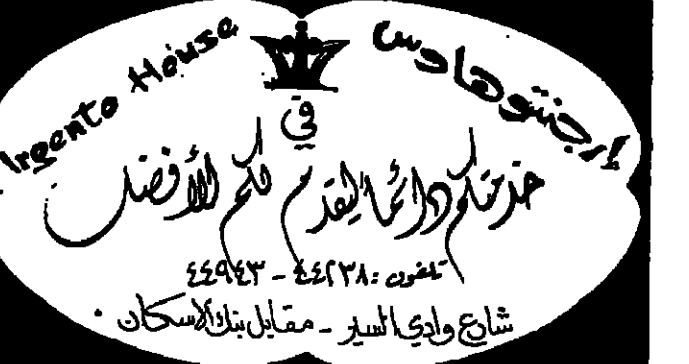 Argento House
إرجنتوهاوس
في
خدمتكم دائماً ليقدم لكم الأفضل
تلفون: ٤٤٢٣٨ - ٤٤٩٤٣
شارع وادي السير - مقابل بنك الاسكان.